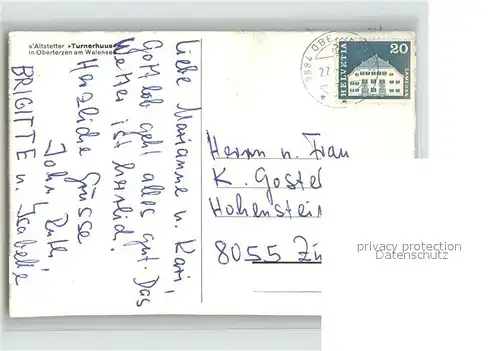 s'Altstetter «Turnerhuus»
in Oberterzen am Walensee
Liebe Marianne u. Kari,
Gottlob geht alles gut. Das
Wetter ist herrlich!
Herzliche Grüsse
John, Ruth,
BRIGITTE u. Isabelle
8884 OBE
22.
5
HELVETIA
20
SAMEDAN
Herrn u. Frau
K. Gostel
Hohenstein
8055 Zü
privacy protection
Datenschutz